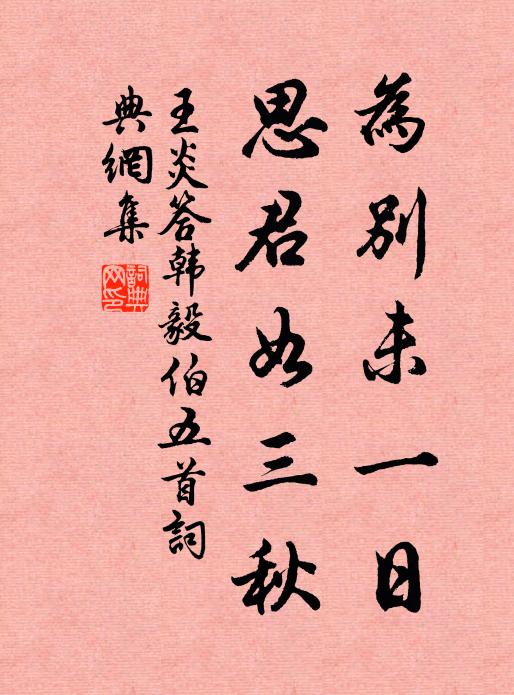 為別未一日
思君如三秋
王炎答韩毅伯五首詞
典網集
詞典
网印